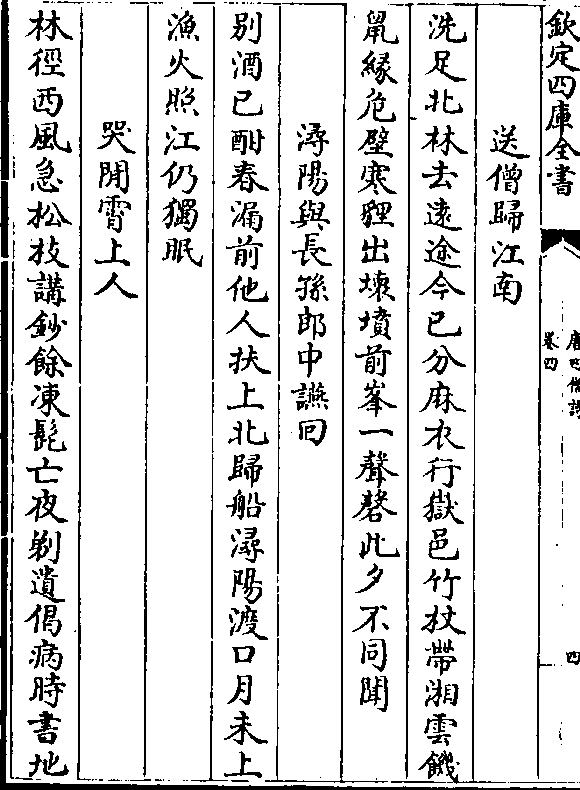 欽定四庫全書
卷四
四
送僧歸江南
洗足北林去遠途今已分麻衣行嶽邑竹杖帶湘雲饑
鼠緣危壁寒貍出壞墳前峯一聲磬此夕不同聞
潯陽與長孫郎中讌回
別酒已酣春漏前他人扶上北歸船潯陽渡口月未上
漁火照江仍獨眠
哭閒霄上人
林徑西風急松枝講鈔餘凍髭亡夜剃遺偈病時書地